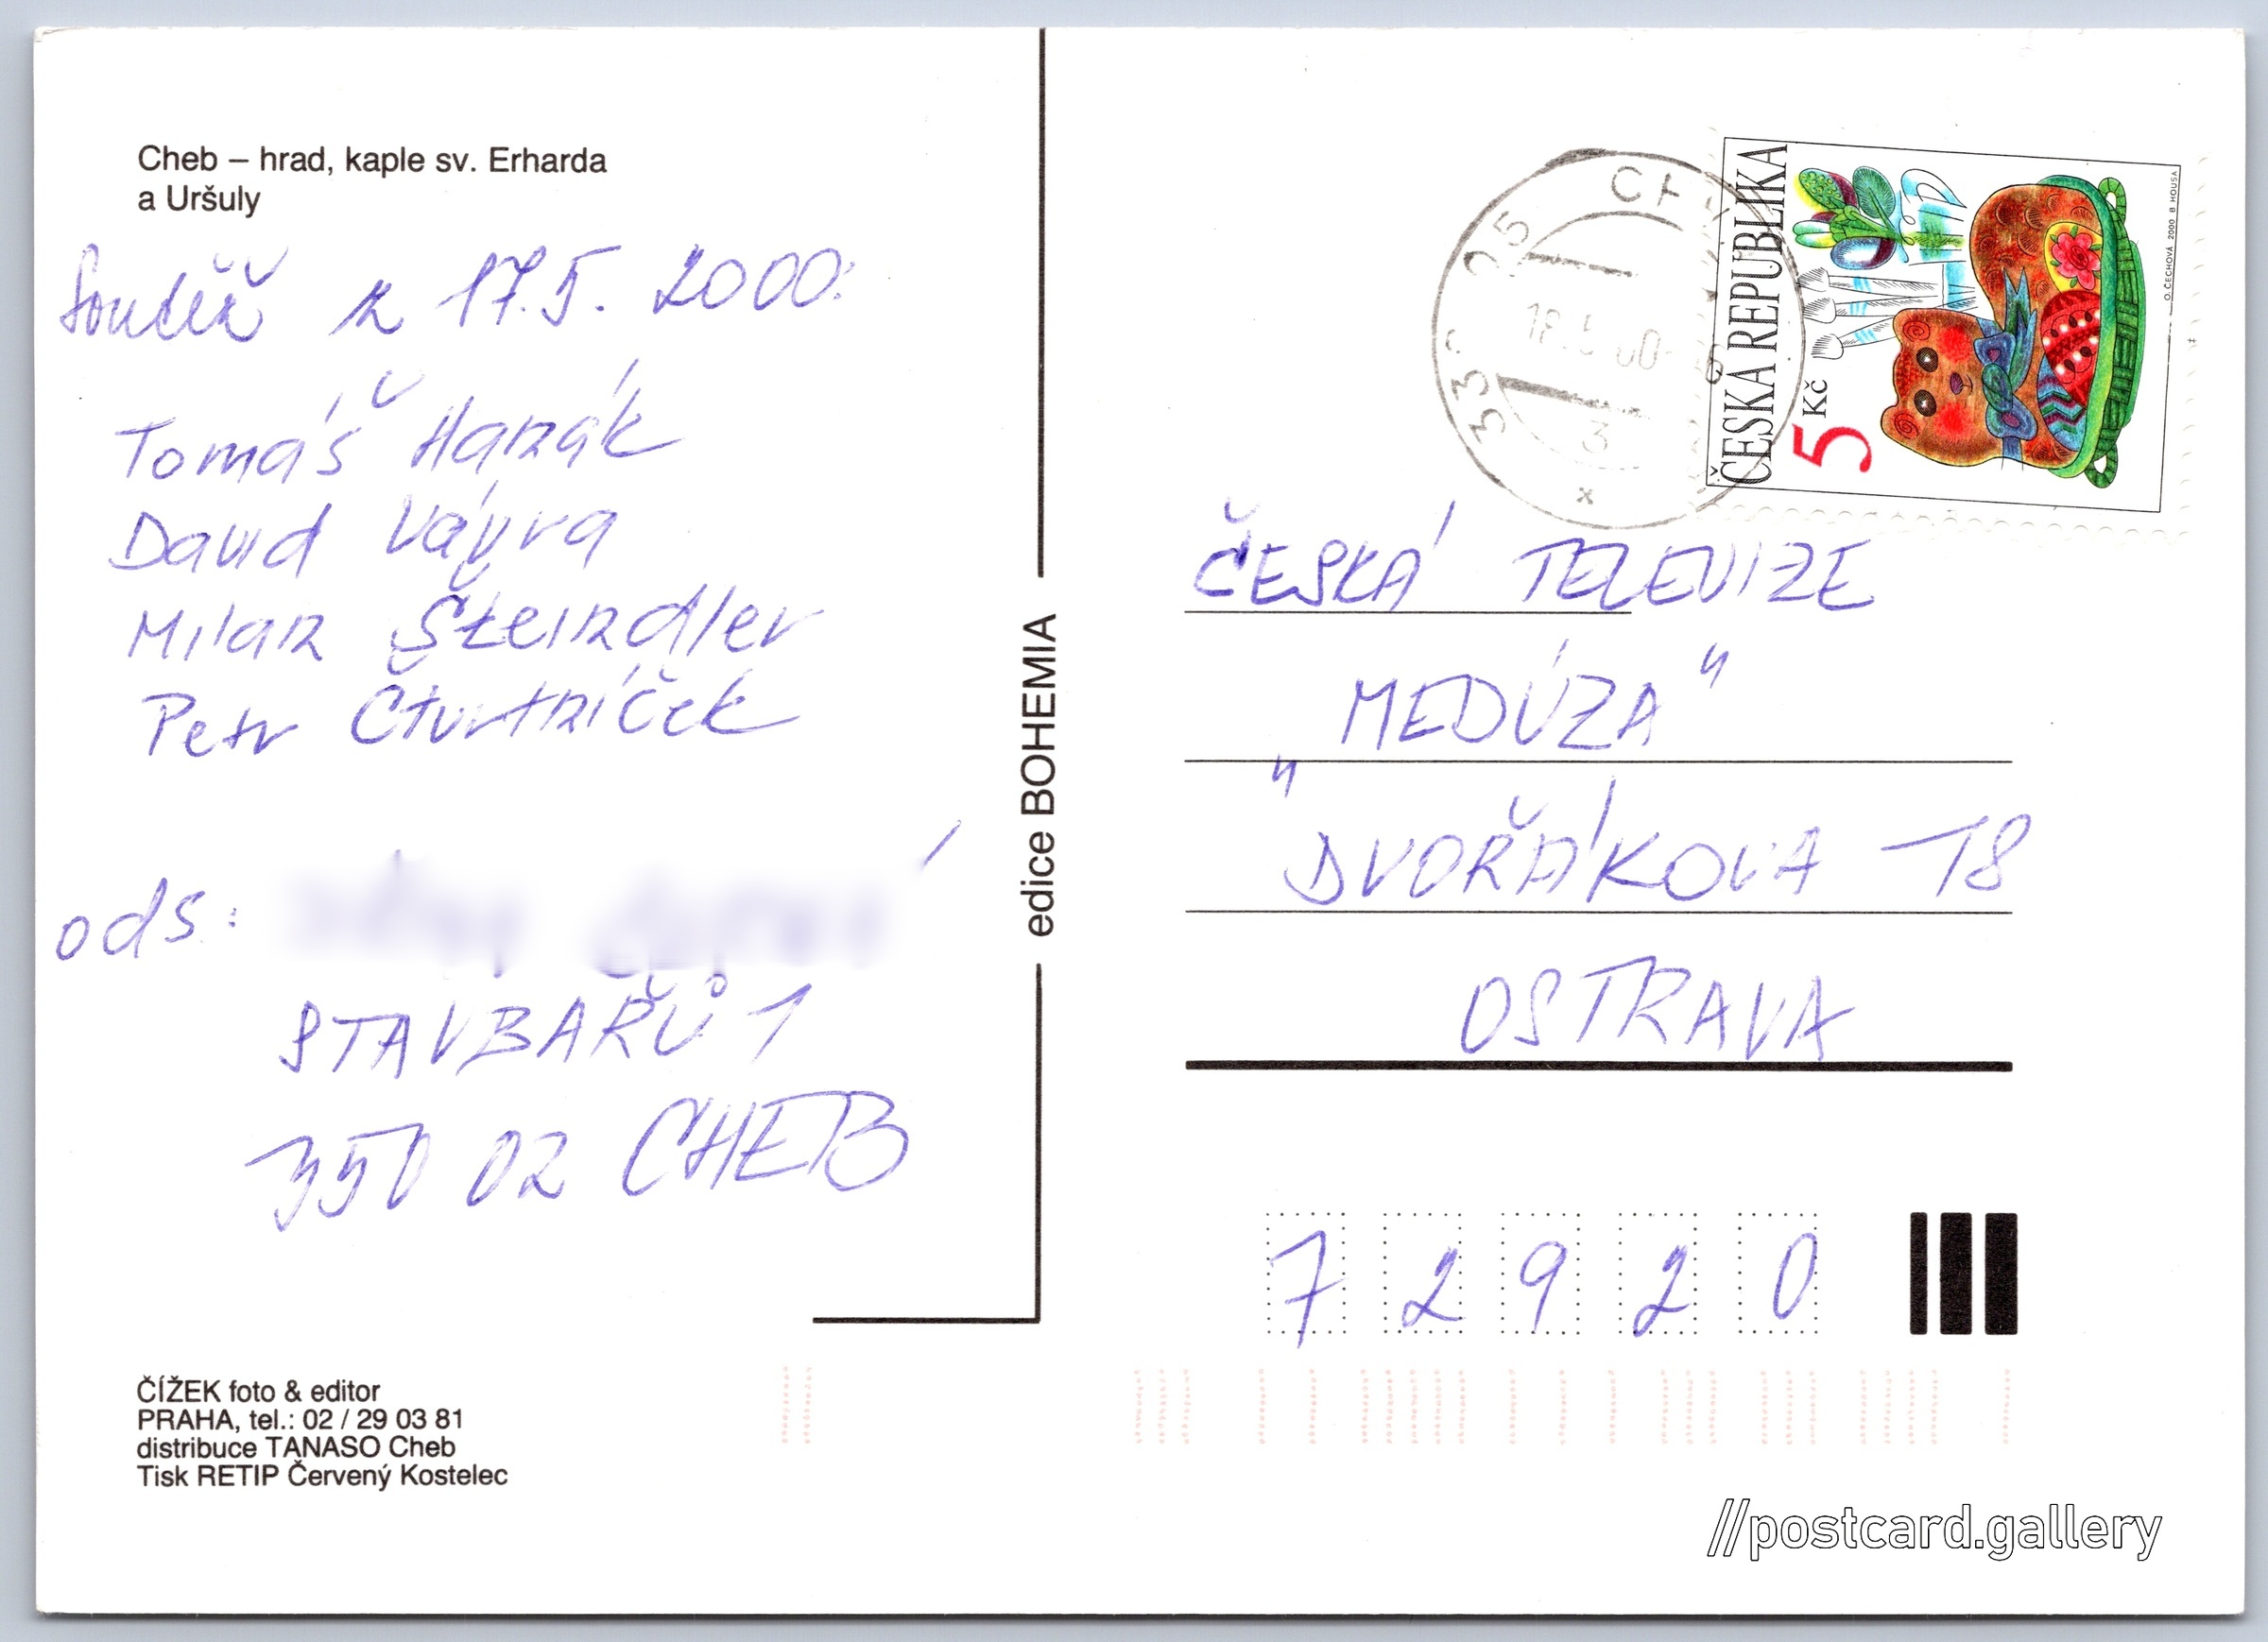 Cheb – hrad, kaple sv. Erharda
a Uršuly
Soutěž z 17.5. 2000:
Tomáš Hanák
David Vávra
Milan Šteindler
Petr Čtvrtníček
ods:
STAVBAŘŮ 1
350 02 CHEB
ČÍŽEK foto & editor
PRAHA, tel.: 02 / 29 03 81
distribuce TANASO Cheb
Tisk RETIP Červený Kostelec
edice BOHEMIA
ČESKÁ REPUBLIKA
5 Kč
O. ČECHOVÁ 2000 B HOUSA
3
ČESKÁ TELEVIZE
MEDÚZA"
"DVOŘÁKOVA 18
OSTRAVA
7 2 9 2 0
//postcard.gallery